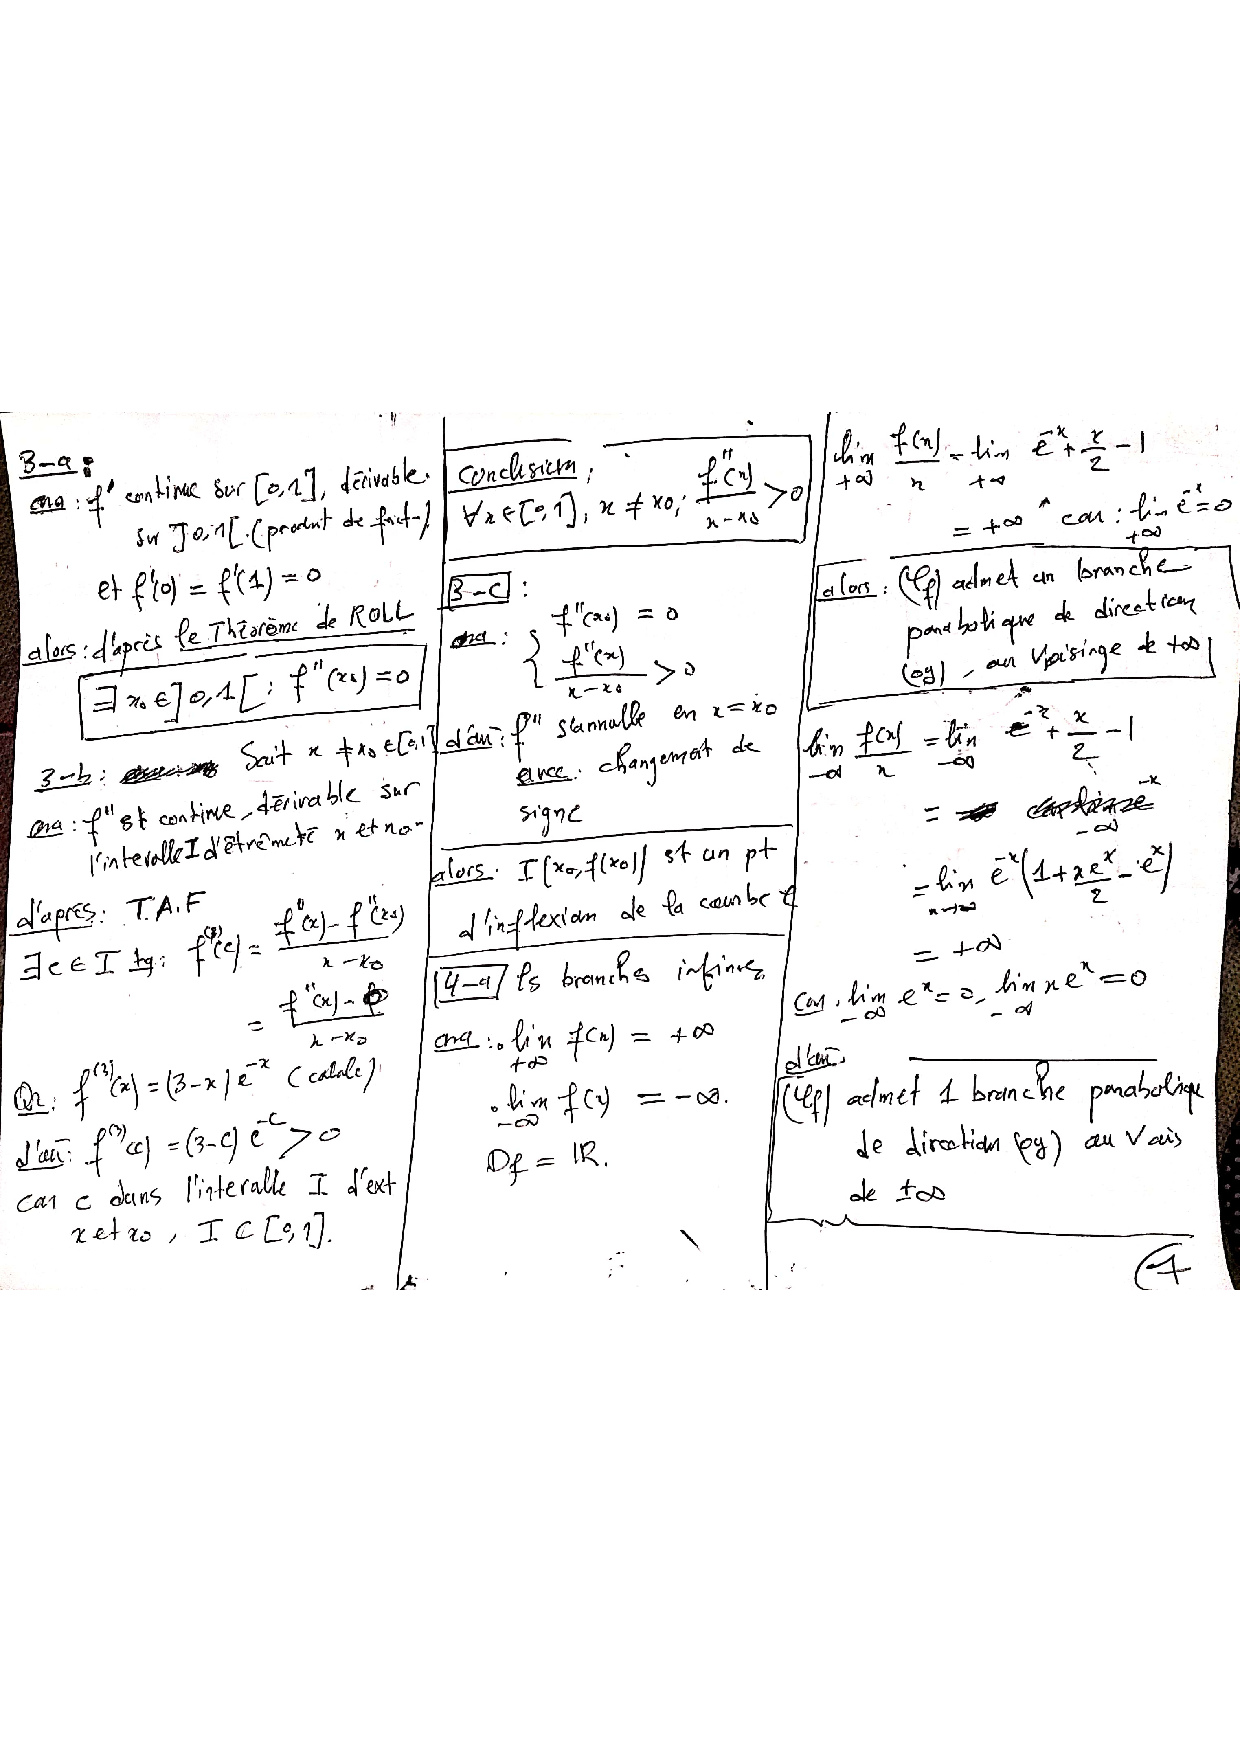 3-a:
ona: f' continue sur [0,1], dérivable
sur ]0,1[. (produit de fnct-)
et f'(0) = f'(1) = 0
alors: d'après le Théorème de ROLL
∃ x₀ ∈ ]0,1[ ; f''(x₀) = 0
3-b: Soit x ≠ x₀ ∈ [0,1]
ona: f'' est continue, dérivable sur
l'intervalle I d'êtrêmeté x et x₀.
d'après: T.A.F
∃c ∈ I tq: f⁽³⁾(c) = (f''(x) - f''(x₀)) / (x - x₀)
= (f''(x) - 0) / (x - x₀)
Or: f⁽³⁾(x) = (3-x) e⁻ˣ (calcule)
d'où: f⁽³⁾(c) = (3-c) e⁻ᶜ > 0
car c dans l'interalle I d'ext
x et x₀, I ⊂ [0,1].
Conclusion,
∀x ∈ [0,1], x ≠ x₀; f''(x) / (x - x₀) > 0
3-c:
ona: { f''(x₀) = 0
f''(x) / (x - x₀) > 0
d'où: f'' s'annulle en x = x₀
avec changement de
signe
alors. I(x₀, f(x₀)) st un pt
d'inflexion de la courbe C
4-a) ls branches infinies
ona: . lim +∞ f(x) = +∞
. lim -∞ f(x) = -∞.
Df = IR.
lim +∞ f(x)/x = lim +∞ e⁻ˣ + x/2 - 1
= +∞ car: lim +∞ e⁻ˣ = 0
alors: (Cf) admet un branche
parabolique de direction
(oy), au Voisinge de +∞
lim -∞ f(x)/x = lim -∞ e⁻ˣ + x/2 - 1
= lim x→-∞ e⁻ˣ (1 + xeˣ/2 - eˣ)
= +∞
Car. lim -∞ eˣ = 0, lim -∞ x eˣ = 0
d'où.
(Cf) admet 1 branche parabolique
de direction (oy) au Vois
de ±∞
4